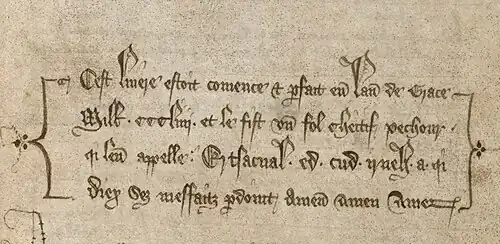 Cest liuere estoit comence & pfait en lan de Grace
Mill . cccliiij . et le fist vn fol cheitif pechour .
qi len appelle : Ertsacnal . ed . cud . irneh . a . qi
diex sez meffaitz pdoint amen amen amen